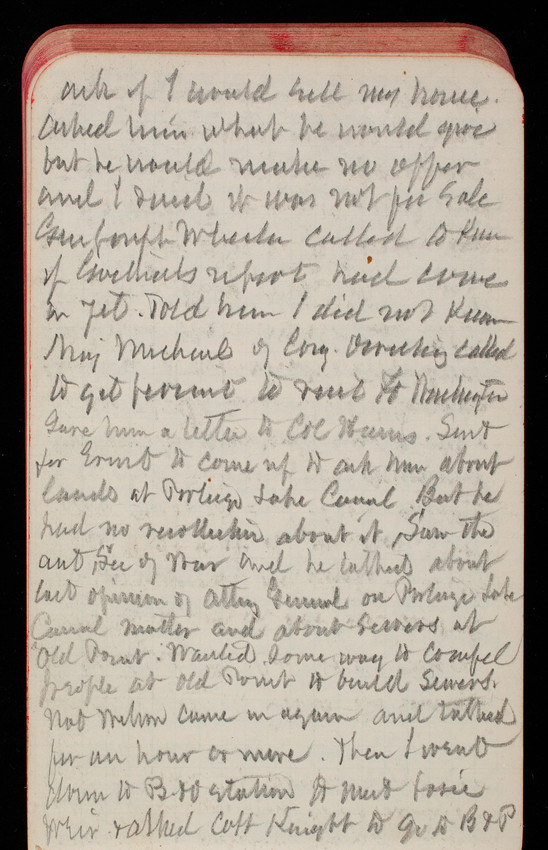 ask if I would sell my house.
Asked him what he would give
but he would make no offer
and I said it was not for Sale
Gen Joseph Wheeler called to know
if Goethals report had come
in yet. Told him I did not know
Maj Michaelis of called
to get permit to visit Ft Washington
Gave him a letter to Col Harris. Sent
for Ernst to come up to ask him about
lands at Portage Lake Canal But he
had no recollection about it, Saw the
act, Sec of War and he talked about
last opinion of Atty General on Portage Lake
Canal matter and about Sewers at
Old Point. Wanted some way to compel
people at Old Point to build Sewers.
Nat Wilson came in again and talked
for an hour or more. Then I went
down to B&O station to meet Josie
Weir asked Capt Knight to go to B&P